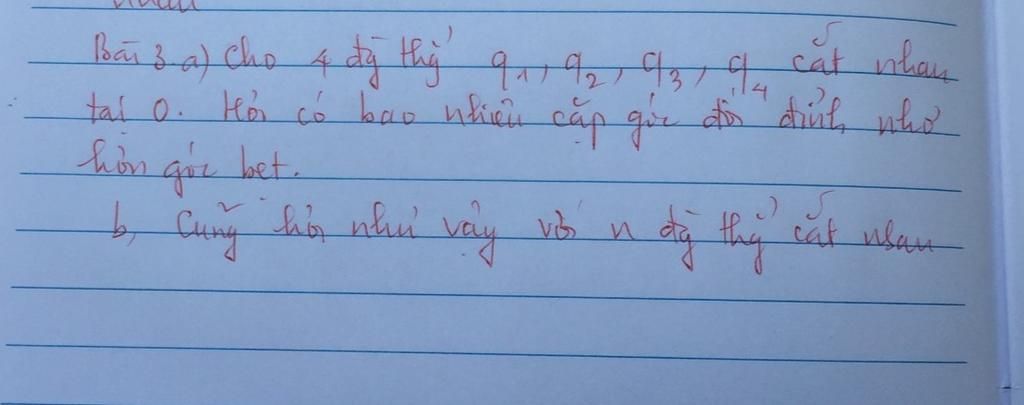 Bài 3. a) Cho 4 đg thg a1, a2, a3, a4 cắt nhau
tại O. Hỏi có bao nhiêu cặp góc đối đỉnh nhỏ
hơn góc bẹt.
b, Cũng hỏi như vậy với n đg thg cắt nhau